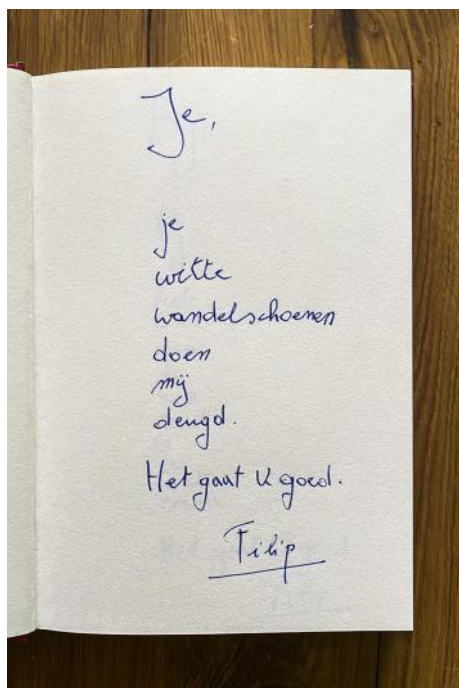 Je,
je
witte
wandelschoenen
doen
mij
deugd.
Het gaat U goed.
Filip